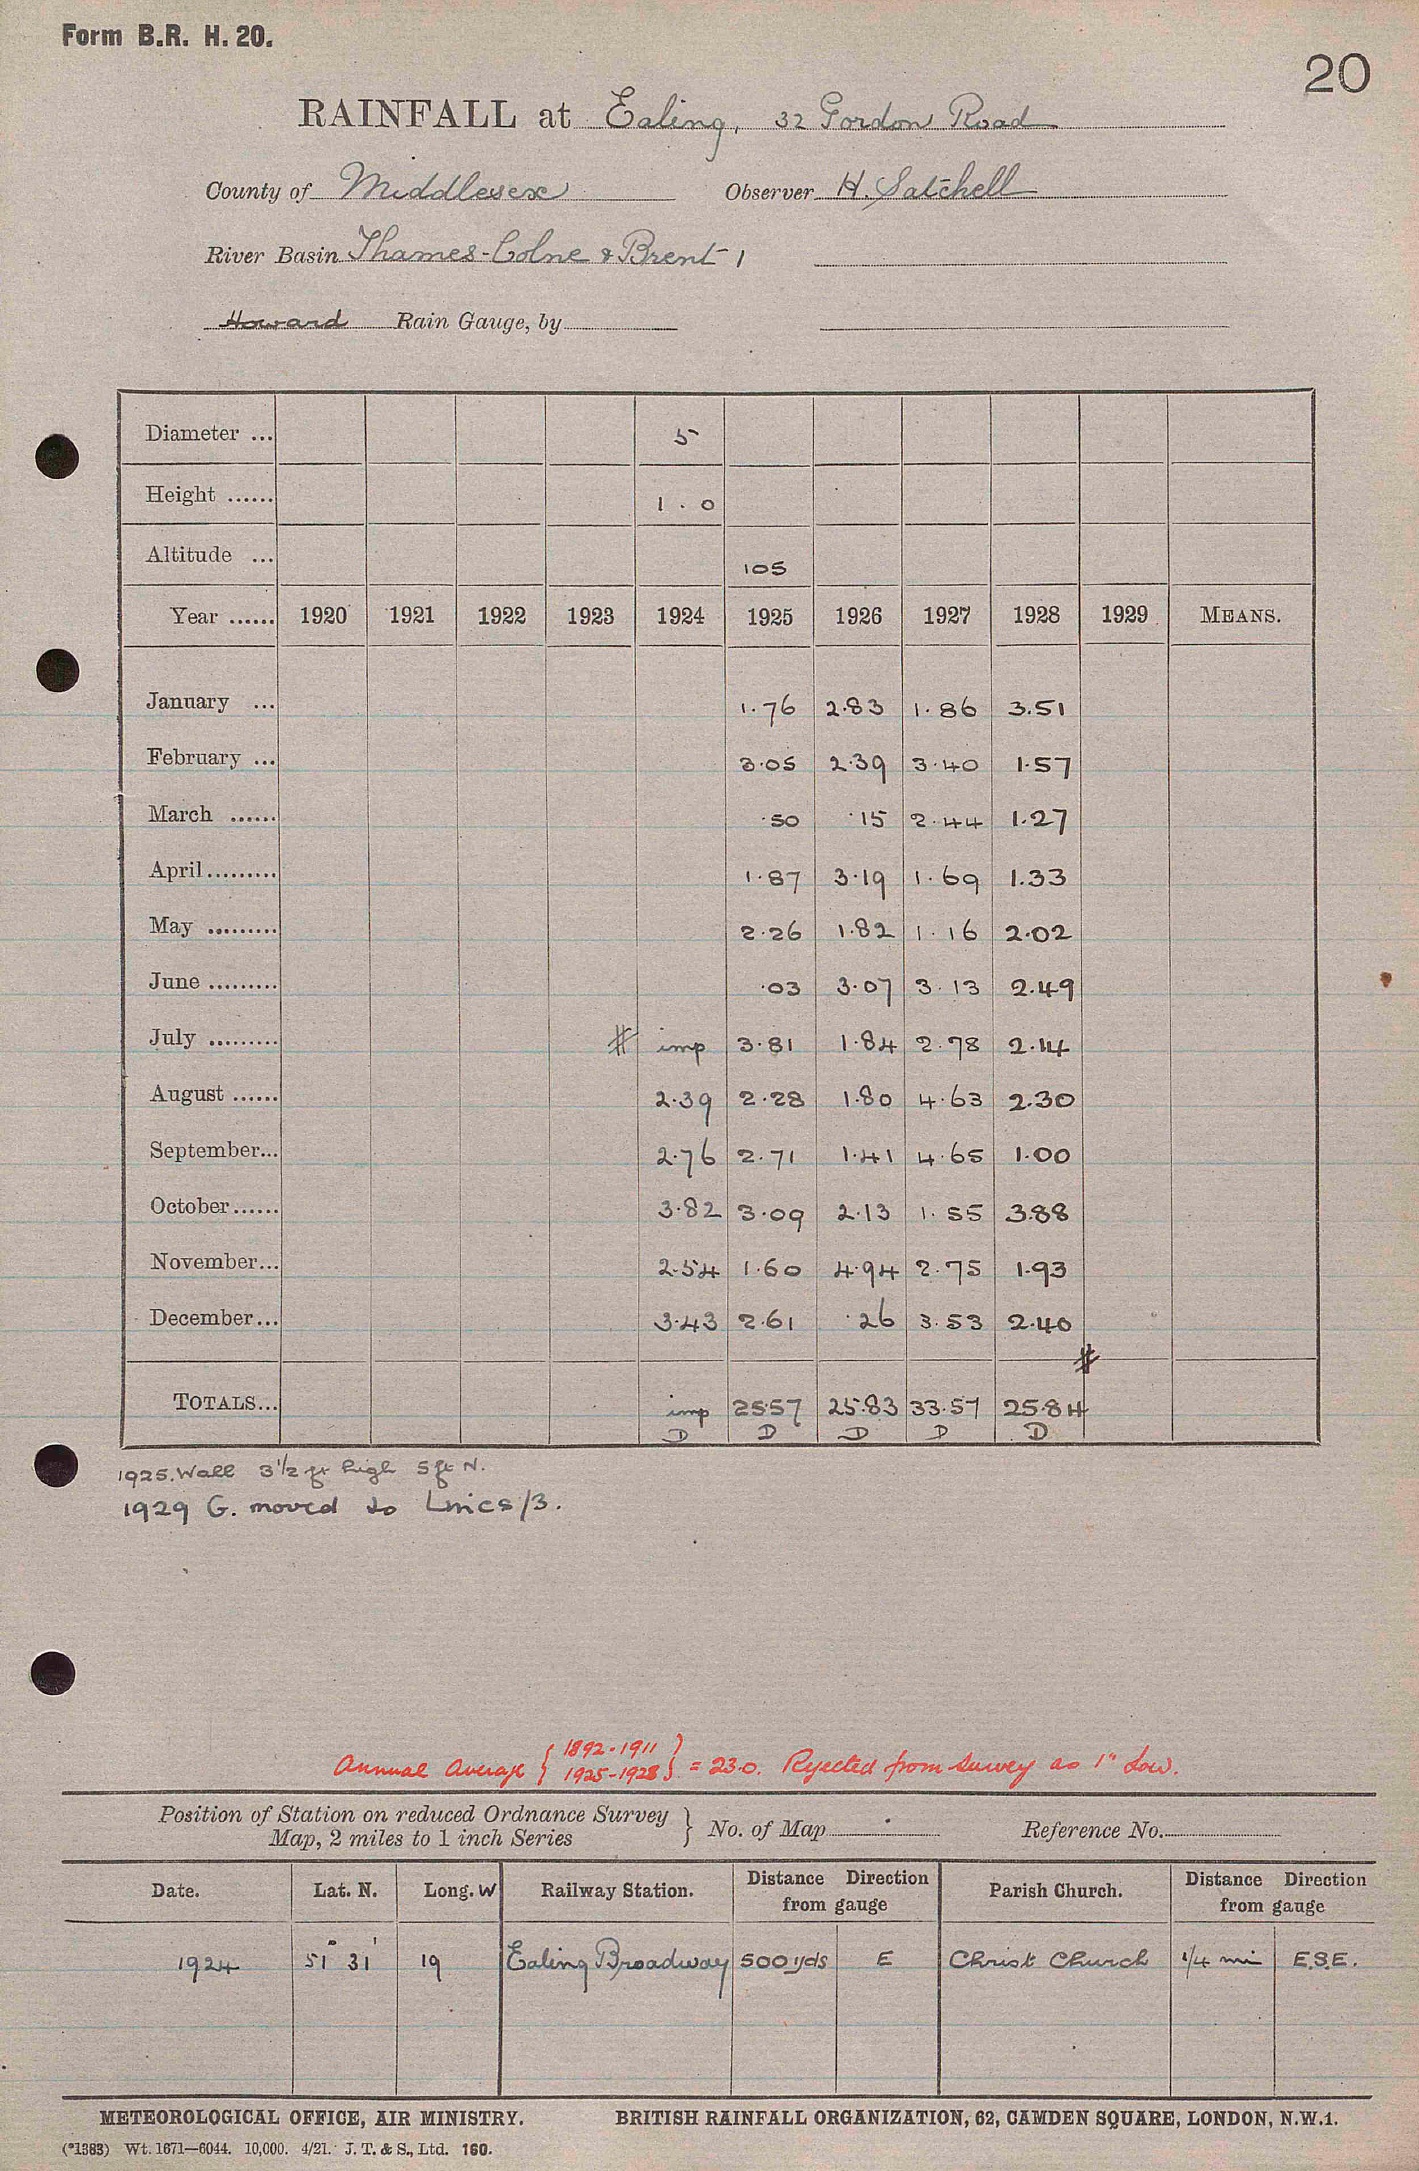 Form B.R. H. 20.
20
RAINFALL at Ealing, 32 Gordon Road
County of Middlesex Observer H. Satchell
River Basin Thames-Colne & Brent 1
Howard Rain Gauge, by
Diameter ... 5
Height ...... 1 . 0
Altitude ... 105
Year ...... 1920 1921 1922 1923 1924 1925 1926 1927 1928 1929 MEANS.
January ... 1.76 2.83 1.86 3.51
February ... 3.05 2.39 3.40 1.57
March ...... .50 .15 2.44 1.27
April......... 1.87 3.19 1.69 1.33
May ......... 2.26 1.82 1.16 2.02
June ......... .03 3.07 3.13 2.49
July ......... # imp 3.81 1.84 2.78 2.14
August ...... 2.39 2.28 1.80 4.63 2.30
September... 2.76 2.71 1.41 4.65 1.00
October...... 3.82 3.09 2.13 1.55 3.88
November... 2.54 1.60 4.94 2.75 1.93
December... 3.43 2.61 .26 3.53 2.40
#
TOTALS... imp 25.57 25.83 33.57 25.84
D D D D D
1925. Wall 3 1/2 ft high 5 ft N.
1929 G. moved to /3.
Annual Average { 1892-1911 1925-1928 } = 23.0. Rejected from survey as 1" low.
Position of Station on reduced Ordnance Survey
Map, 2 miles to 1 inch Series } No. of Map Reference No.
Date. Lat. N. Long. W Railway Station. Distance Direction from gauge Parish Church. Distance Direction from gauge
1924 51° 31' 19 Ealing Broadway 500 yds E Christ Church 1/4 mi E.S.E.
METEOROLOGICAL OFFICE, AIR MINISTRY. BRITISH RAINFALL ORGANIZATION, 62, CAMDEN SQUARE, LONDON, N.W.1.
(*1383) Wt. 1671—6044. 10,000. 4/21. J. T. & S., Ltd. 160.